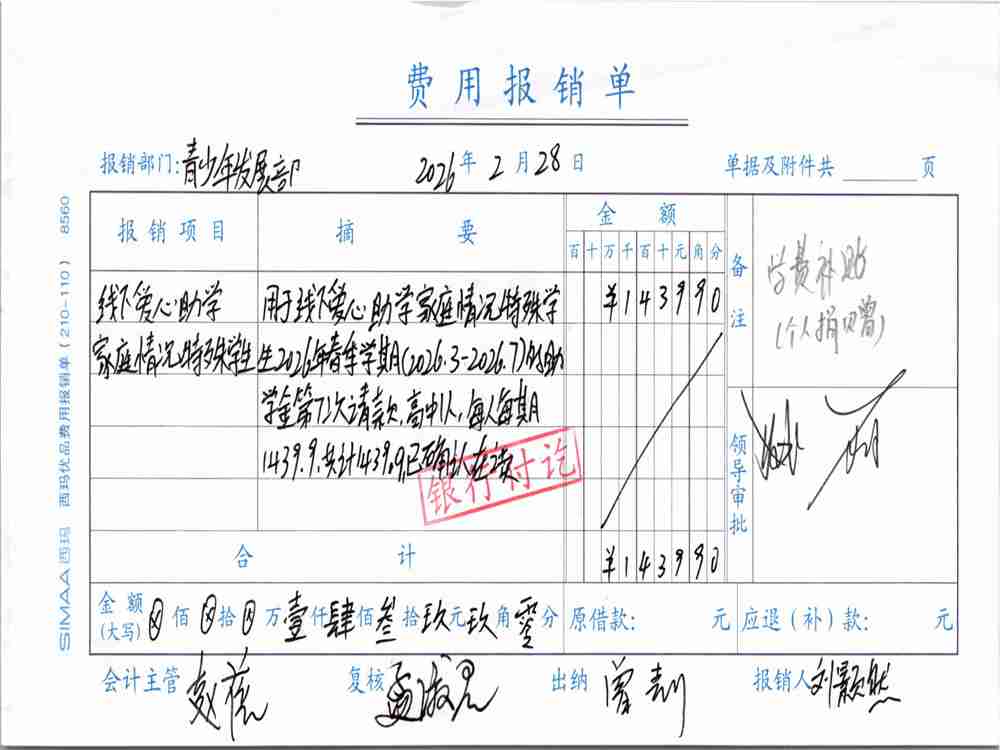 费用报销单
报销部门:青少年发展部 2026年2月28日 单据及附件共 页
报销项目 摘要 金额 备注
百十万千百十元角分
学费补助
(个人捐赠)
线下爱心助学 用于线下爱心助学家庭情况特殊学 ¥143990
家庭情况特殊学生 生2026年春季学期(2026.3-2026.7)的助
学金第72次请款,高中1人,每人每期
1439.9.共计1439.9,已确认在读
银行付讫
领导审批
合计 ¥143990
金额(大写) ⊗佰⊗拾⊗万壹仟肆佰叁拾玖元玖角零分 原借款: 元 应退(补)款: 元
会计主管 复核 出纳 曾 报销人 刘颢然
SIMAA 西玛 西玛优品费用报销单(210-110) 8560